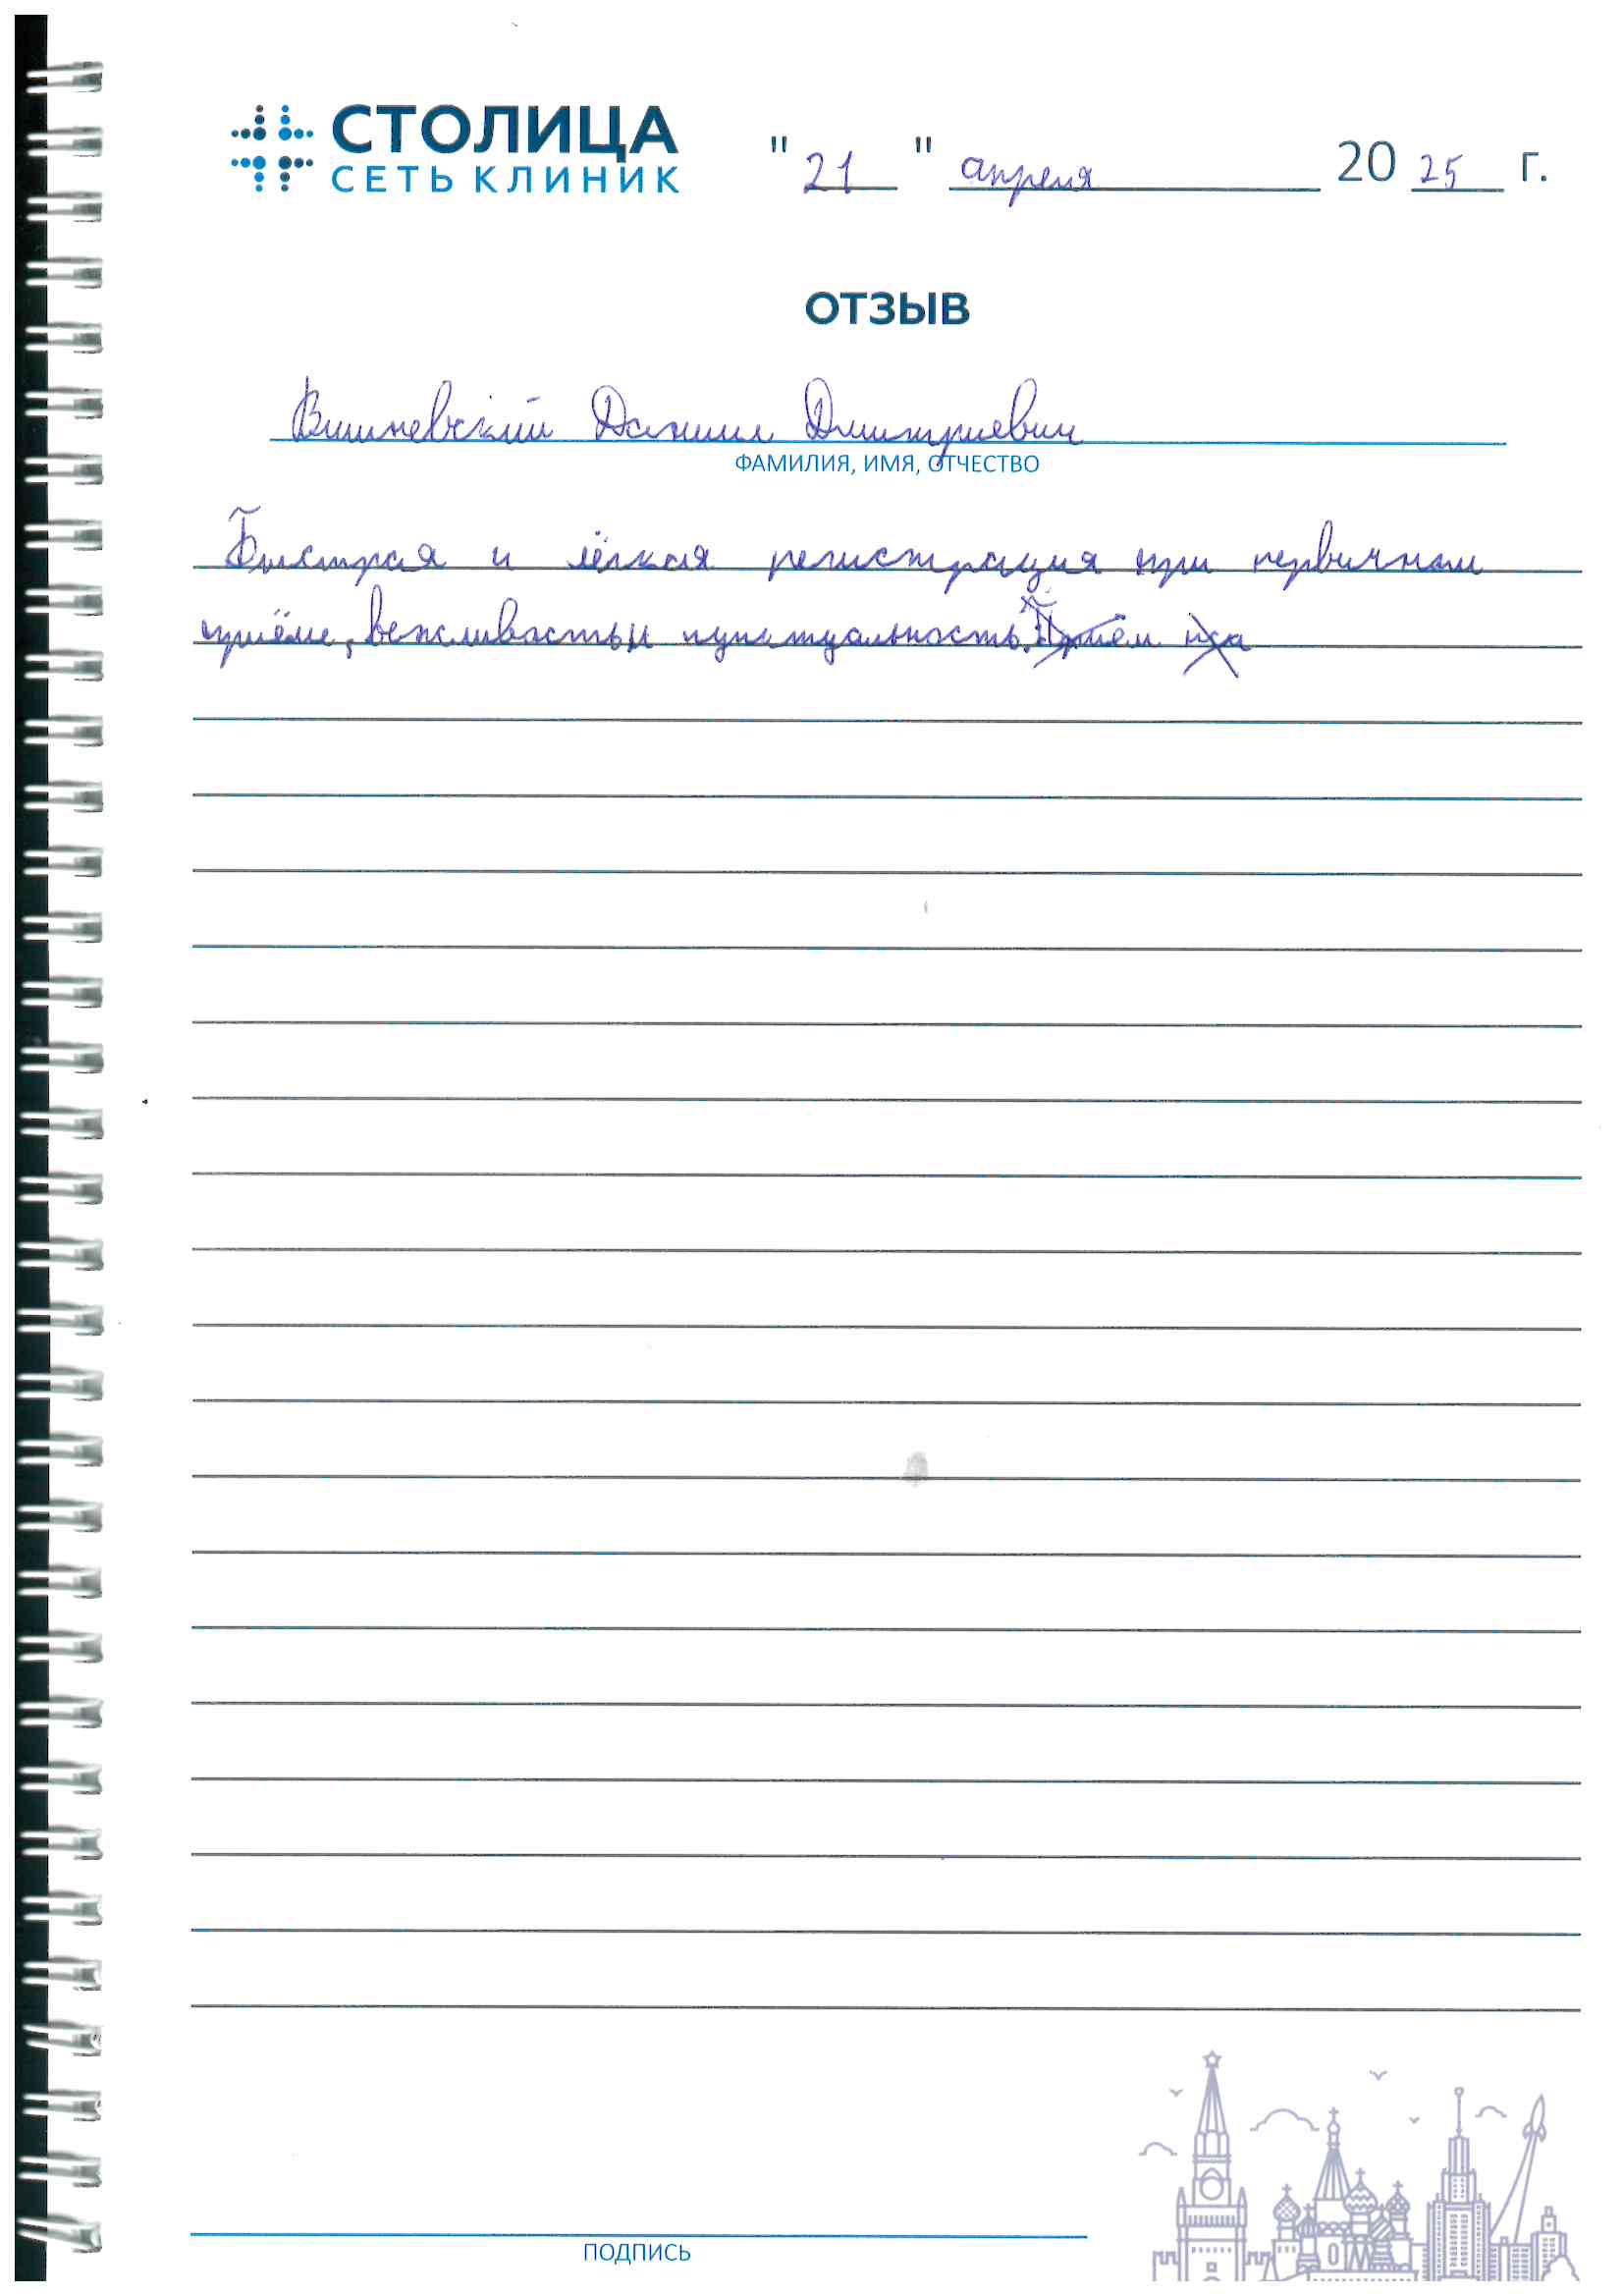 СТОЛИЦА
СЕТЬ КЛИНИК
"21" апреля 2025 г.
ОТЗЫВ
Вишневский Даниил Дмитриевич
ФАМИЛИЯ, ИМЯ, ОТЧЕСТВО
Быстрая и лёгкая регистрация при первичном
приёме, вежливость и пунктуальность. Приём
ПОДПИСЬ